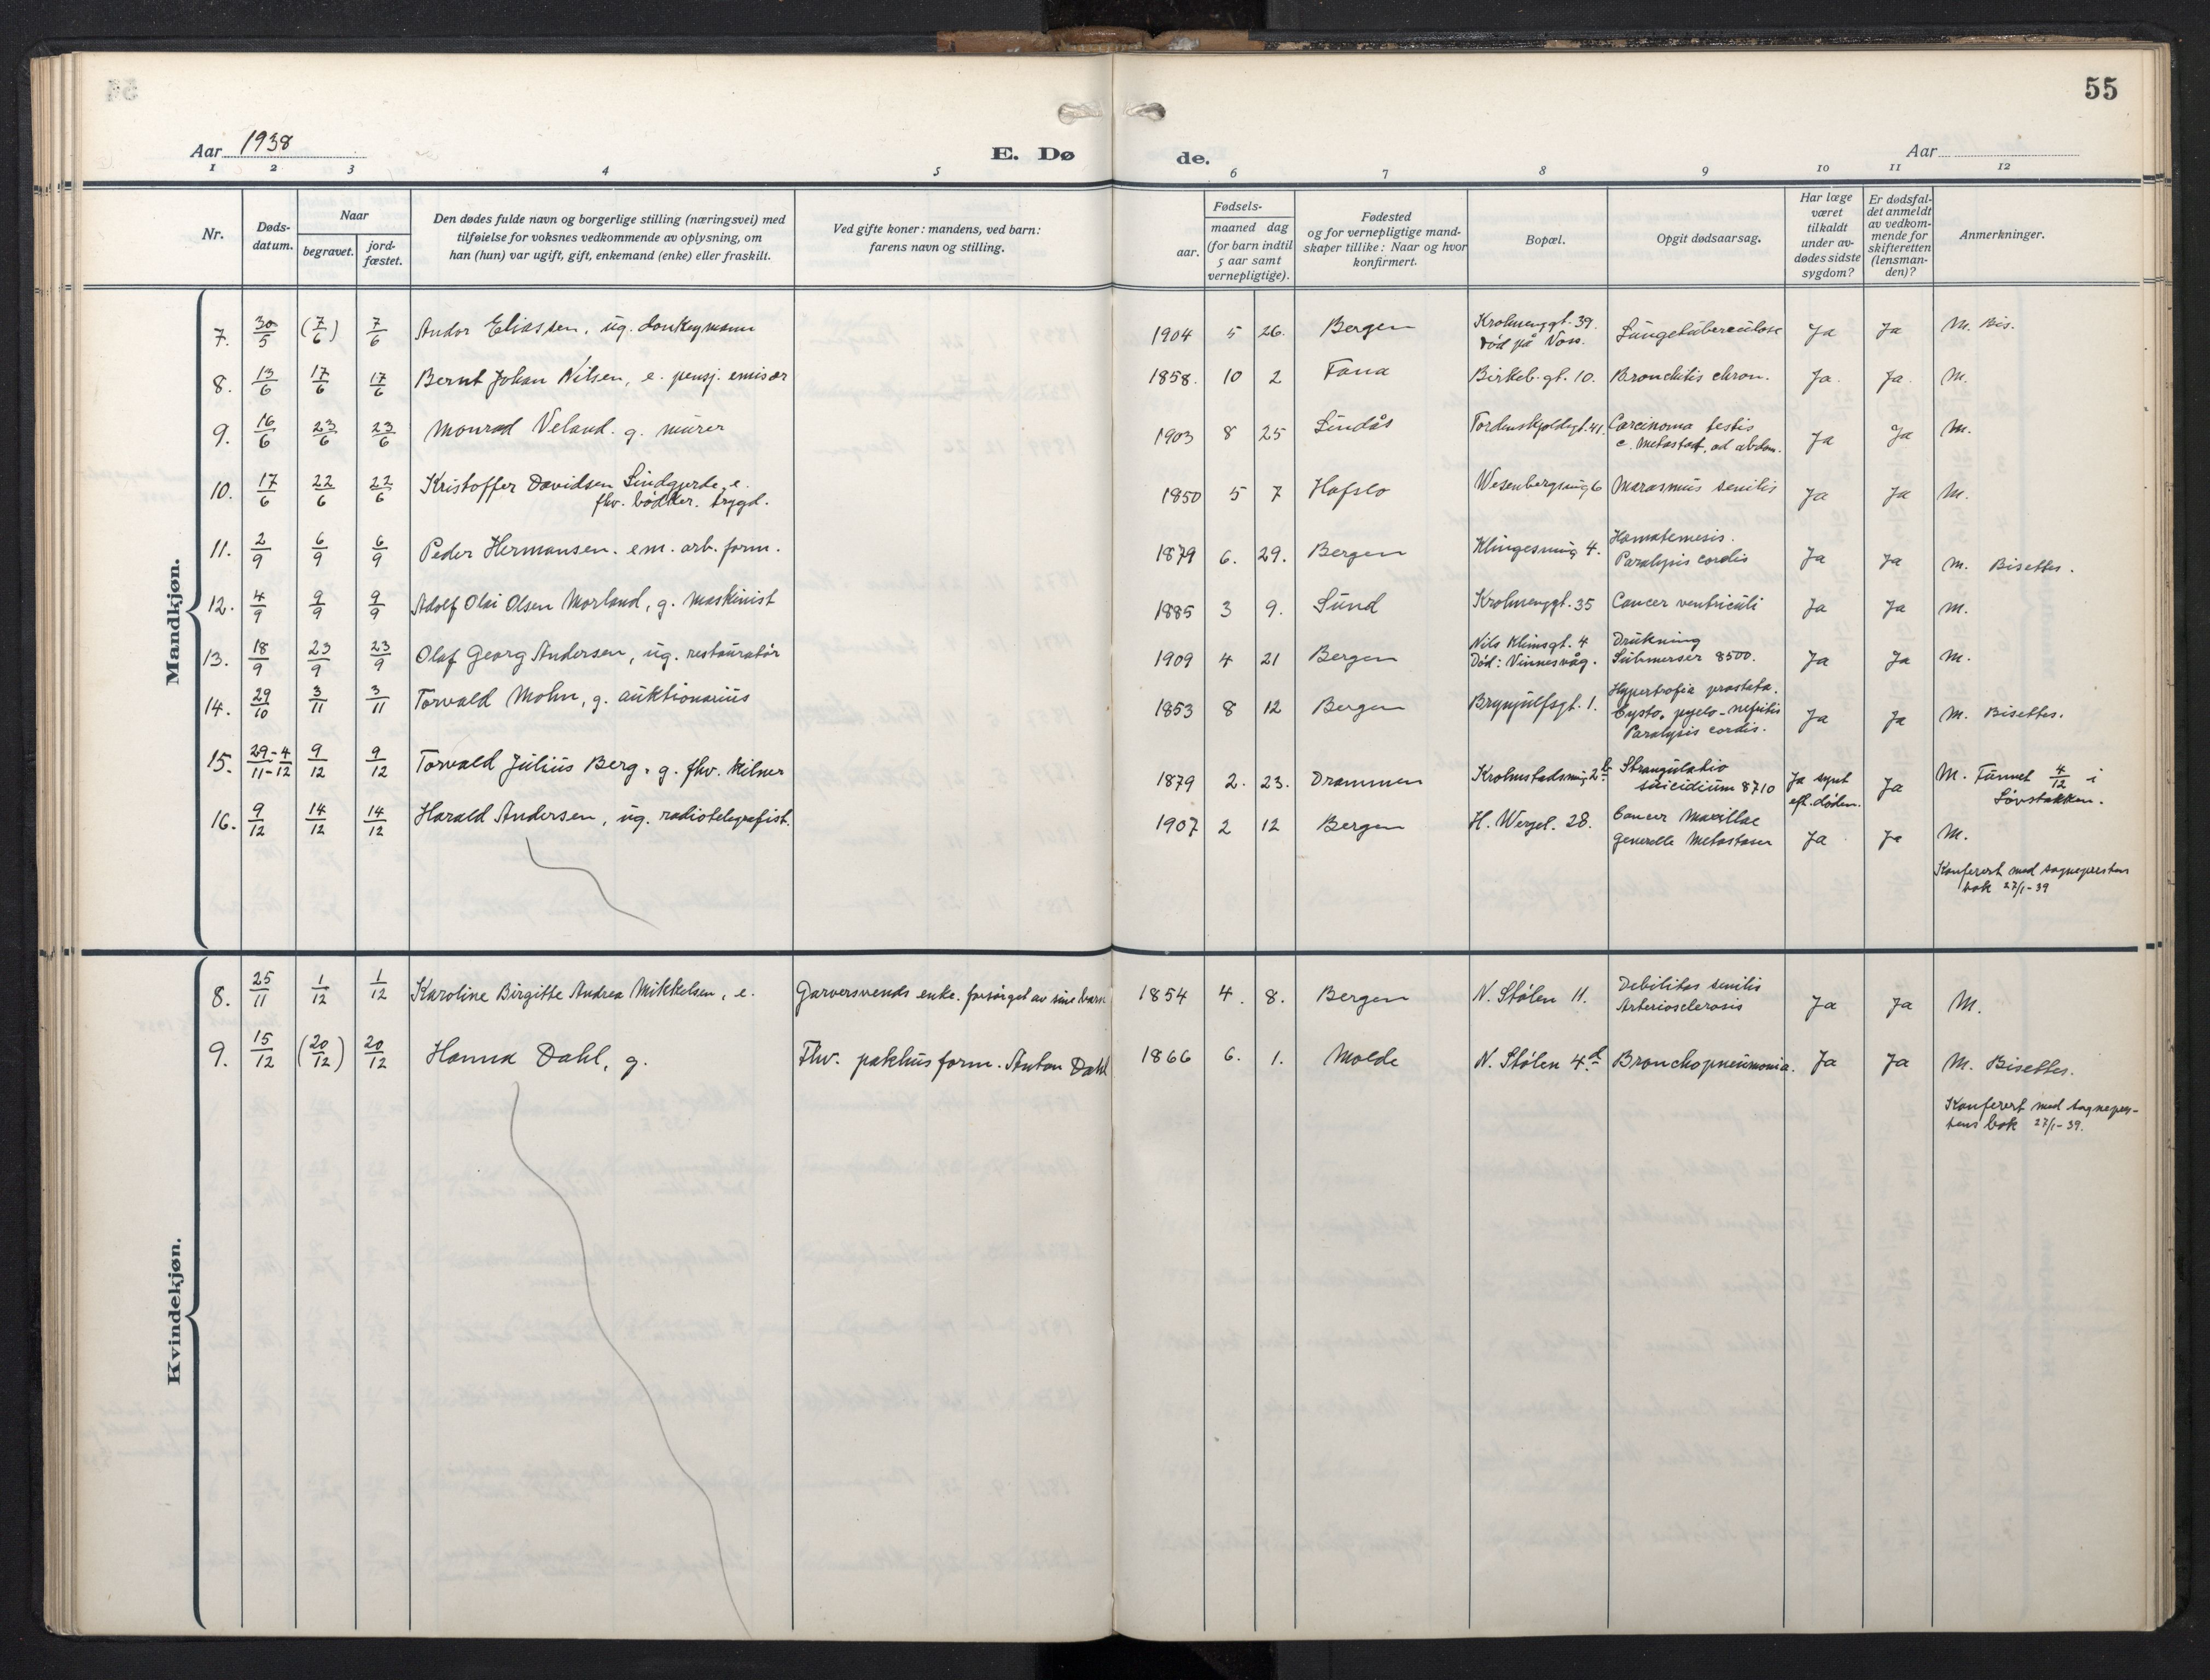 55
Aar 1938
E. Dø
de.
Aar
1 2 3 4 5 6 7 8 9 10 11 12
Nr.
Døds-
datum.
Naar
begravet.
jord-
fæstet.
Den dødes fulde navn og borgerlige stilling (næringsvei) med
tilføielse for voksnes vedkommende av oplysning, om
han (hun) var ugift, gift, enkemand (enke) eller fraskilt.
Ved gifte koner: mandens, ved barn:
farens navn og stilling.
Fødsels-
aar.
maaned dag
(for barn indtil
5 aar samt
vernepligtige).
Fødested
og for vernepligtige mand-
skaper tillike: Naar og hvor
konfirmert.
Bopæl.
Opgit dødsaarsag.
Har læge
været
tilkaldt
under av-
dødes sidste
sygdom?
Er dødsfal-
det anmeldt
av vedkom-
mende for
skifteretten
(lensman-
den)?
Anmerkninger.
Mandkjøn.
7. 30/5 (7/6) 7/6 Andor Eliassen, ug. donkeymann 1904 5 26. Bergen Krohnenggt. 39. Lungetuberculose Ja Ja M. Bis.
død på Voss.
8. 13/6 17/6 17/6 Bernt Johan Nilsen, e. pensj. emisær 1858. 10 2 Fana Birkeb. gt. 10. Bronchitis chron. Ja. Ja. M.
9. 16/6 23/6 23/6 Monrad Veland. g. murer 1903 8 25 Lindås Tordenskjoldsgt. 41. Carcinoma testis Ja Ja M.
c. metastat. ad abdom.
10. 17/6 22/6 22/6 Kristoffer Davidsen Lindgjerde, e. 1850 5 7 Hafslo Wesenbergsmug 6 Marasmus senilis Ja Ja M.
fhv. bødker. trygd.
11. 2/9 6/9 6/9 Peder Hermansen. em. arb. form. 1879 6. 29. Bergen Klingesmug 4. Hæmatemesis. Ja Ja M. Bisettes.
Paralysis cordis
12. 4/9 9/9 9/9 Adolf Olai Olsen Morland, g. maskinist 1885 3 9. Sund Krohnenggt. 35 Cancer ventriculi Ja Ja M.
13. 18/9 23/9 23/9 Olaf Georg Andersen, ug. restauratør 1909 4 21 Bergen Nils Klimsgt. 4 Drukning Ja Ja M.
Død: Vinnesvåg. Submersio 8500.
14. 29/10 3/11 3/11 Torvald Mohn, g. auktionarius 1853 8 12 Bergen Brynjulfsgt. 1. Hypertrofia prostata. Ja Ja M. Bisettes.
Cysto. pyelo-nefritis
Paralysis cordis.
15. 29-4/11-12 9/12 9/12 Torvald Julius Berg. g. fhv. kelner 1879 2. 23. Drammen Krohnstadsmug 2b Strangulatio Ja synt Ja M. Funnet 4/12 i
suicidium 8710 eft. døden. Løvstakken.
16. 9/12 14/12 14/12 Harald Andersen, ug. radiotelegrafist. 1907 2 12 Bergen H. Wergel. 28. Cancer Maxillae Ja Ja M.
generelle Metastaser
Konferert med sogneprestens
bok 27/1-39
Kvindekjøn.
8. 25/11 1/12 1/12 Karoline Birgitte Andrea Mikkelsen, e. Garversvends enke. forsørget av sine barn 1854 4. 8. Bergen N. Stølen 11. Debilitas senilis Ja Ja M.
Arteriosclerosis
9. 15/12 (20/12) 20/12 Hanna Dahl, g. Fhv. pakhusform. Anton Dahl 1866 6. 1. Molde N. Stølen 4d Bronchopneumonia. Ja Ja M. Bisettes.
Konferert med sognepres-
tens bok 27/1-39.